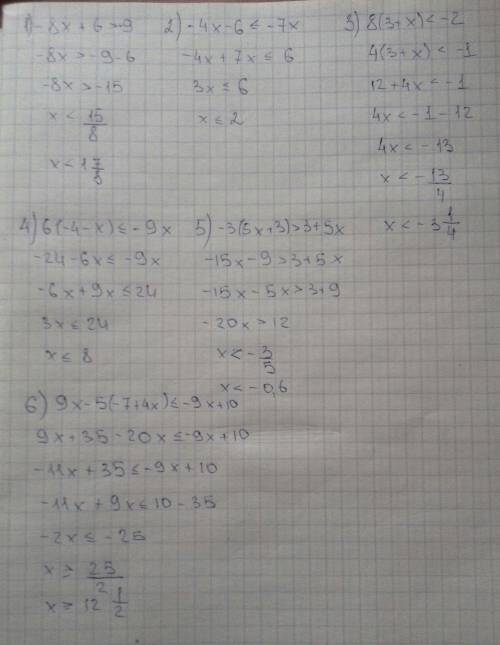 1) -8x + 6 > -9
-8x > -9-6
-8x > -15
x < 15/8
x < 1 7/8
2) -4x-6 ≤ -7x
-4x+7x ≤ 6
3x ≤ 6
x ≤ 2
3) 8(3+x) < -2
4(3+x) < -1
12+4x < -1
4x < -1-12
4x < -13
x < -13/4
x < -3 1/4
4) 6(-4-x) ≤ -9x
-24-6x ≤ -9x
-6x+9x ≤ 24
3x ≤ 24
x ≤ 8
5) -3(5x+3) > 3+5x
-15x-9 > 3+5x
-15x-5x > 3+9
-20x > 12
x < -3/5
x < -0,6
6) 9x-5(-7+4x) ≤ -9x+10
9x+35-20x ≤ -9x+10
-11x+35 ≤ -9x+10
-11x+9x ≤ 10-35
-2x ≤ -25
x ≥ 25/2
x ≥ 12 1/2